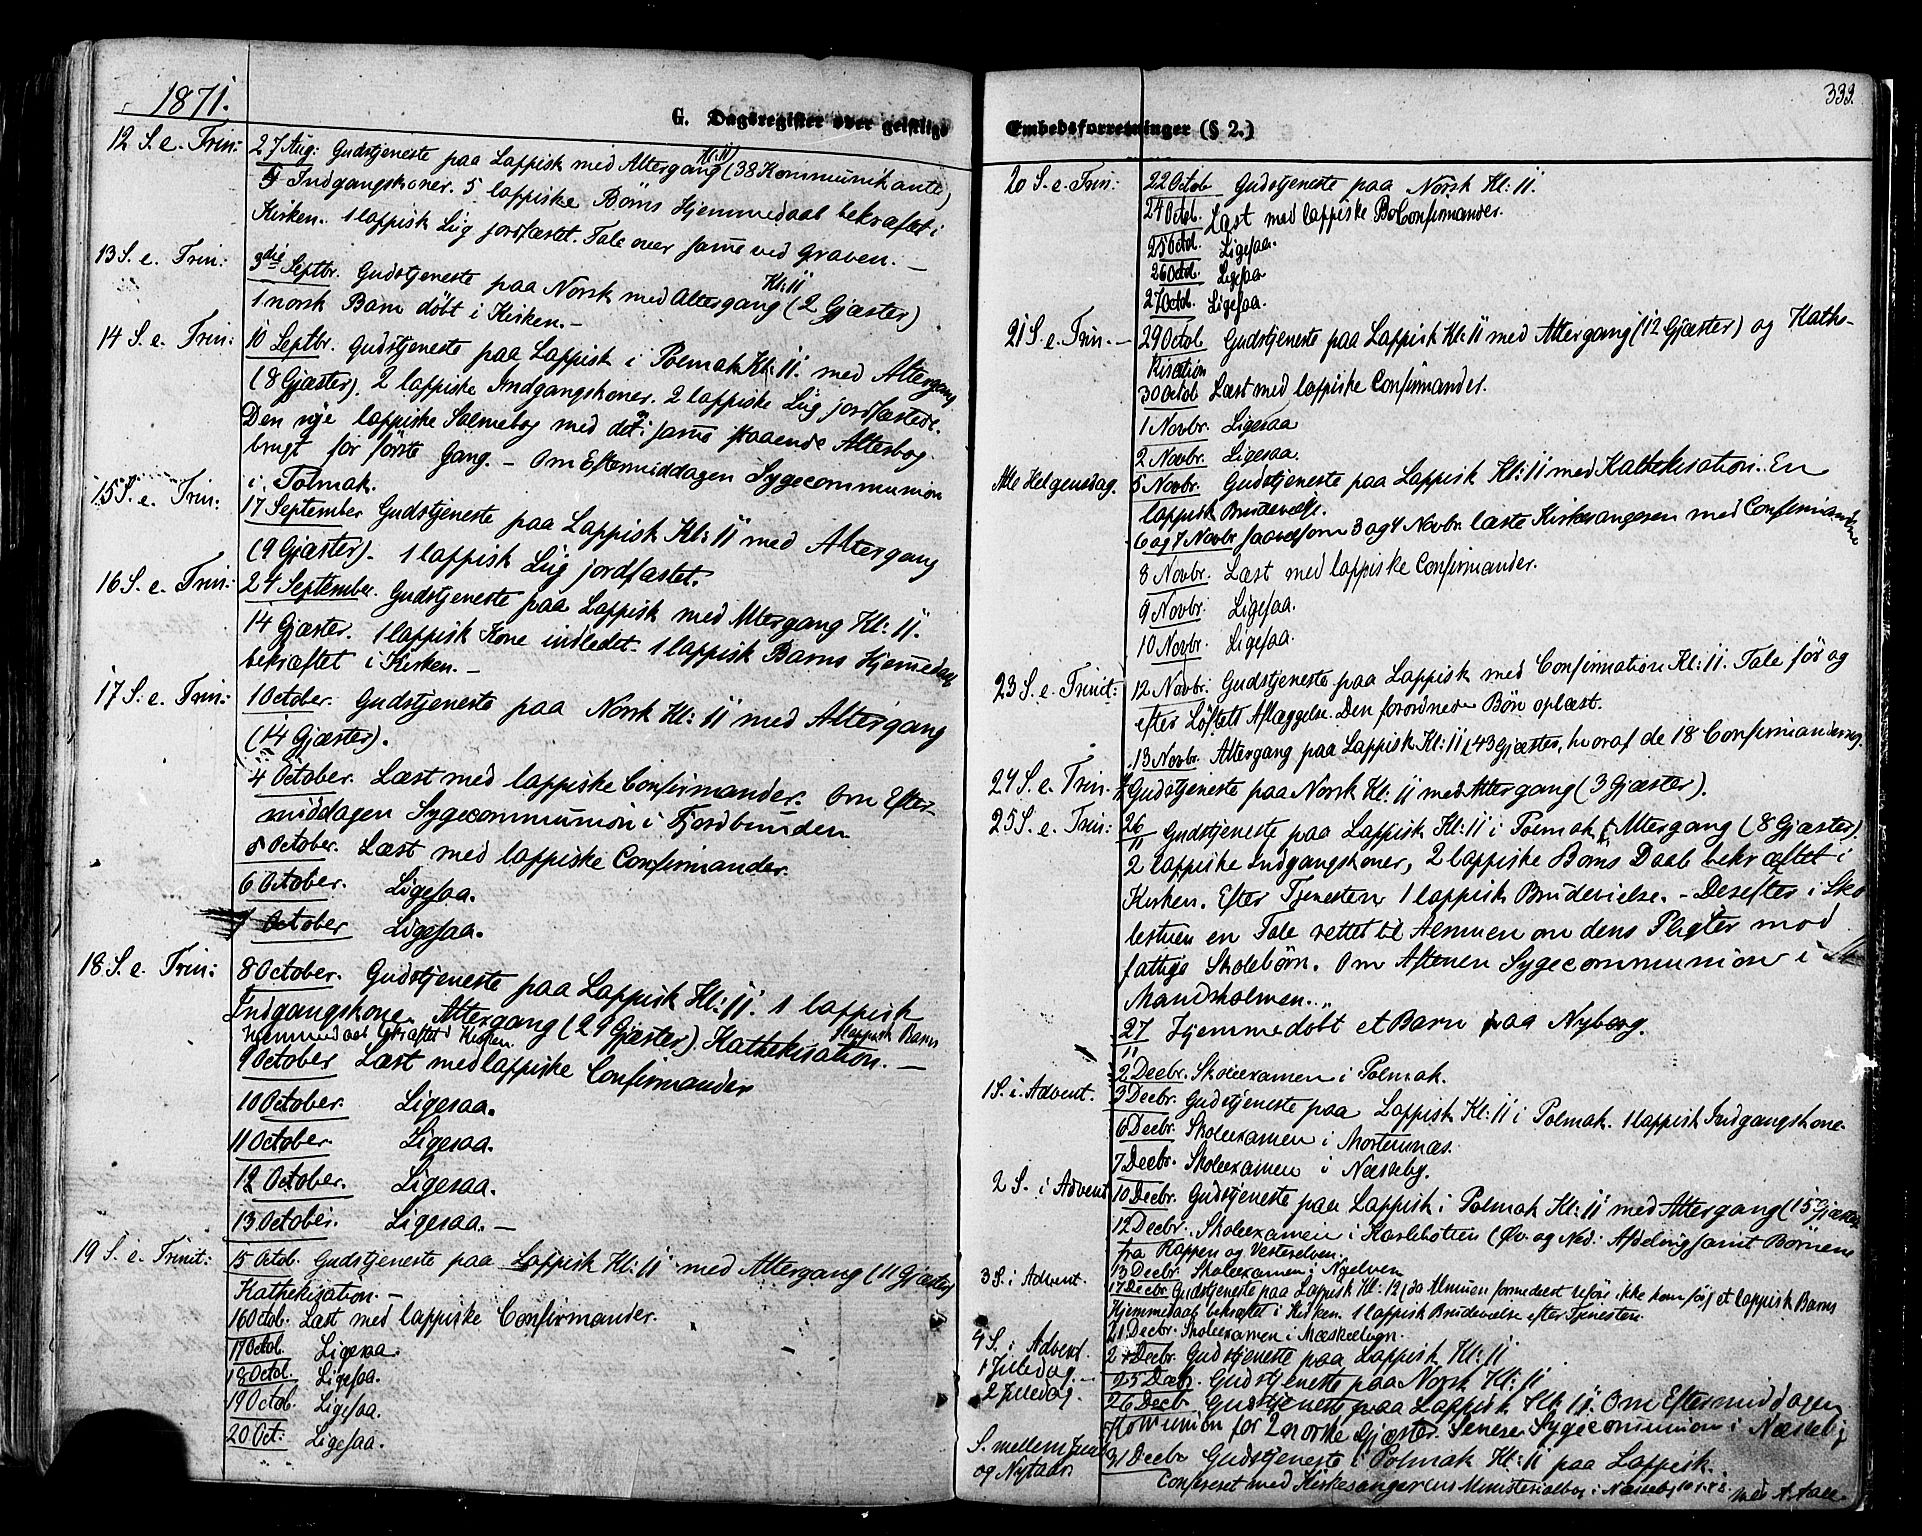 1871.
G. Dagsregister over geistlige
12 S. e. Trin: 27 Aug: Gudstjeneste paa Lappisk med Altergang Kl. 11 (38 Kommunikanter)
Indgangskoner. 5 lappiske Børns Hjemmedaab bekræftet i
Kirken. 1 lappisk Liig jordfæstet. Tale over samme ved Graven. –
13 S. e. Trin: 3die Septbr. Gudstjeneste paa Norsk med Altergang Kl: 11 (2 Gjæster)
1 norsk Barn døbt i Kirken. –
14 S. e. Trin: 10 Septbr. Gudstjeneste paa Lappisk i Polmak Kl: 11. med Altergang
(8 Gjæster). 2 lappiske Indgangskoner. 2 lappiske Liig jordfæstede.
Den nye lappiske Salmebog med det i samme staaende Alterbog
brugt for første Gang. – Om Eftermiddagen Sygecommunion
i Polmak.
15 S. e. Trin: 17 September Gudstjeneste paa Lappisk Kl: 11 med Altergang
(9 Gjæster). 1 lappisk Liig jordfæstet.
16 S. e. Trin: 24 September. Gudstjeneste paa Lappisk med Altergang Kl: 11.
14 Gjæster. 1 lappisk Kone indledet. 1 lappisk Barns Hjemmedaab
bekræftet i Kirken. –
17 S. e. Trin: 1 October. Gudstjeneste paa Norsk Kl: 11 med Altergang
(14 Gjæster).
4 October. Læst med lappiske Confirmander. Om Efter-
middagen Sygecommunion i Fjordbunden.
5 October. Læst med lappiske Confirmander.
6 October. Ligesaa.
7 October Ligesaa.
18 S. e. Trin: 8 October. Gudstjeneste paa Lappisk Kl: 11. 1 lappisk
Indgangskone. Altergang (29 Gjæster). Kathekisation. – 1 lappisk Barns
Hjemmedaab bekræftet i Kirken.
9 October Læst med lappiske Confirmander
10 October. Ligesaa.
11 October. Ligesaa.
12 October. Ligesaa.
13 October. Ligesaa. –
19 S. e. Trinit: 15 Octob. Gudstjeneste paa Lappisk Kl: 11 med Altergang (11 Gjæster)
Kathekisation. –
16 Octob. Læst med lappiske Confirmander.
17 Octob. Ligesaa.
18 Octob. Ligesaa.
19 Octob. Ligesaa.
20 Oct: Ligesaa.
333.
Embedsforretninger (§ 2.)
20 S. e. Trin: 22 Octob Gudstjeneste paa Norsk Kl: 11.
24 Octob. Læst med lappiske Confirmander.
25 Octob. Ligesaa.
26 Octob. Ligesaa
27 Octob. Ligesaa.
21 S. e. Trin. – 29 Octob Gudstjeneste paa Lappisk Kl: 11 med Altergang (12 Gjæster) og Kathe-
kisation
30 Octob Læst med lappiske Confirmander.
1 Novbr. Ligesaa
2 Novbr. Ligesaa.
Alle Helgensdag. 5 Novbr. Gudstjeneste paa Lappisk Kl: 11 med Kathekisation. En
lappisk Brudevielse.
6 og 7 Novbr saavelsom 3 og 4 Novbr. læste Kirkesangeren med Confirmanderne
8 Novbr. Læst med lappiske Confirmander.
9 Novbr. Ligesaa.
10 Novbr. Ligesaa.
23 S. e. Trinit: 12 Novbr: Gudstjeneste paa Lappisk med Confirmation Kl: 11. Tale før og
efter Løftets Aflæggelse. Den forordnede Bøn oplæst.
13 Novbr. Altergang paa Lappisk Kl: 11 (43 Gjæster, hvoraf de 18 Confirmander).
24 S. e. Trin. Gudstjeneste paa Norsk Kl: 11 med Altergang (3 Gjæster).
25 S. e. Trin: 26/11 Gudstjeneste paa Lappisk Kl: 11 i Polmak. Altergang (8 Gjæster).
2 lappiske Indgangskoner, 2 lappiske Børns Daab bekræftet i
Kirken. Efter Tjenesten 1 lappisk Brudevielse. – Derefter i Sko
lestuen en Tale rettet til Almuen om dens Pligter mod
fattige Skolebørn. Om Aftenen Sygecommunion i
Mandsholmen.
27/11 Hjemmedøbt et Barn paa Nyborg.
2 Decbr. Skoleexamen i Polmak.
1 S. i Advent. 3 Decbr. Gudstjeneste paa Lappisk Kl: 11 i Polmak. 1 lappisk Indgangskone
6 Decbr. Skoleexamen i Mortensnæs.
7 Decbr. Skoleexamen i Næsseby.
2 S. i Advent 10 Decbr. Gudstjeneste paa Lappisk i Polmak Kl: 11 med Altergang (15 Gjæster
12 Decbr. Skoleexamen i Karlebotten (Øv. og Ned: Afdeling samt Børnene
fra Kappen og Vesterelven.
13 Decbr. Skoleexamen i Nyelven
3 S. i Advent. 17 Decbr Gudstjeneste paa Lappisk Kl: 12 (da Almuen formedelst Veføre ikke kom før) et lappisk Barns
Hjemmedaab bekræftet i Kirken. 1 lappisk Brudevielse efter Tjenesten.
21 Decbr. Skoleexamen i Mæskelven.
4 S. i Advent. 24 Decbr. Gudstjeneste paa Lappisk Kl: 11
1 Juledag. – 25 Decbr. Gudstjeneste paa Norsk Kl: 11
2 Juledag. 26 Decbr Gudstjeneste paa Lappisk Kl: 11. Om Eftermiddagen
Kommunion for 2 norske Gjæster. Senere Sygecommunion i Næsseby
S. mellem Juul
og Nytaar. 31 Decbr Gudstjeneste i Polmak Kl: 11 paa Lappisk.
Confereret med Kirkesangerens Ministerialbog i Næsseby